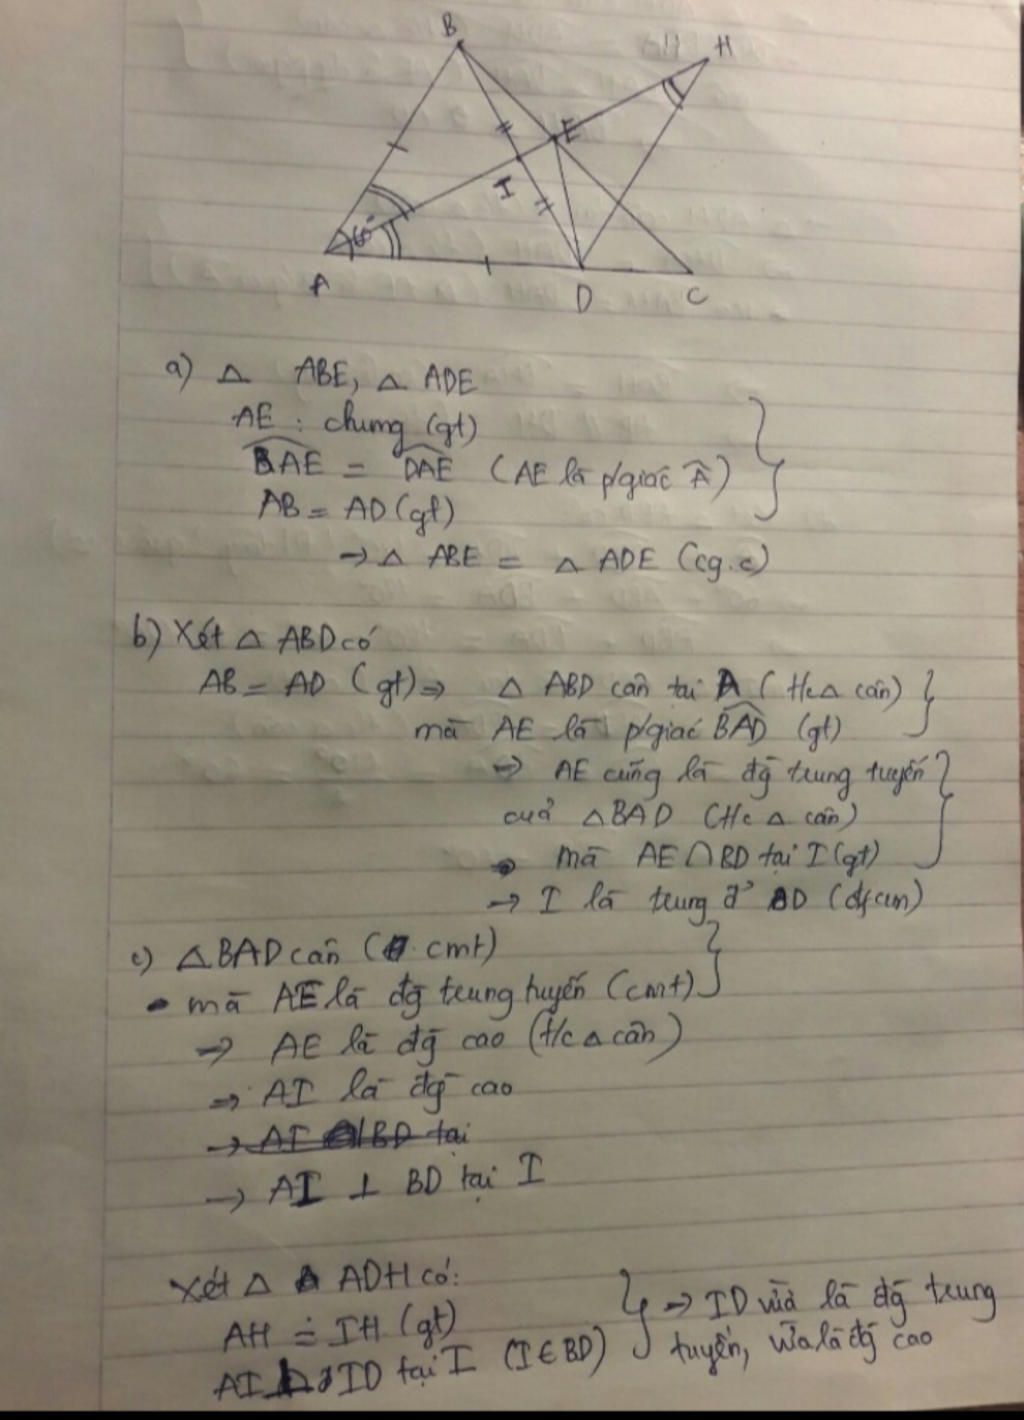 B
H
E
I
60°
A
D
C
a) △ ABE, △ ADE
AE : chung (gt)
BAE = DAE (AE là p/giác Â)
AB = AD (gt)
→ △ ABE = △ ADE (cg.c)
b) Xét △ ABD có
AB = AD (gt) ⇒ △ ABD cân tại A (t/c △ cân)
mà AE là p/giác BAD (gt)
→ AE cũng là đg trung tuyến
của △BAD (t/c △ cân)
mà AE ∩ BD tại I (gt)
→ I là trung đ' BD (đfcm)
c) △BAD cân (cmt)
mà AE là đg trung tuyến (cmt)
→ AE là đg cao (t/c △ cân)
→ AI là đg cao
→ AI BD tại
→ AI ⊥ BD tại I
Xét △ ADH có:
AH = IH (gt)
→ ID vừa là đg trung
AI ID tại I (I ∈ BD)
tuyến, vừa là đg cao